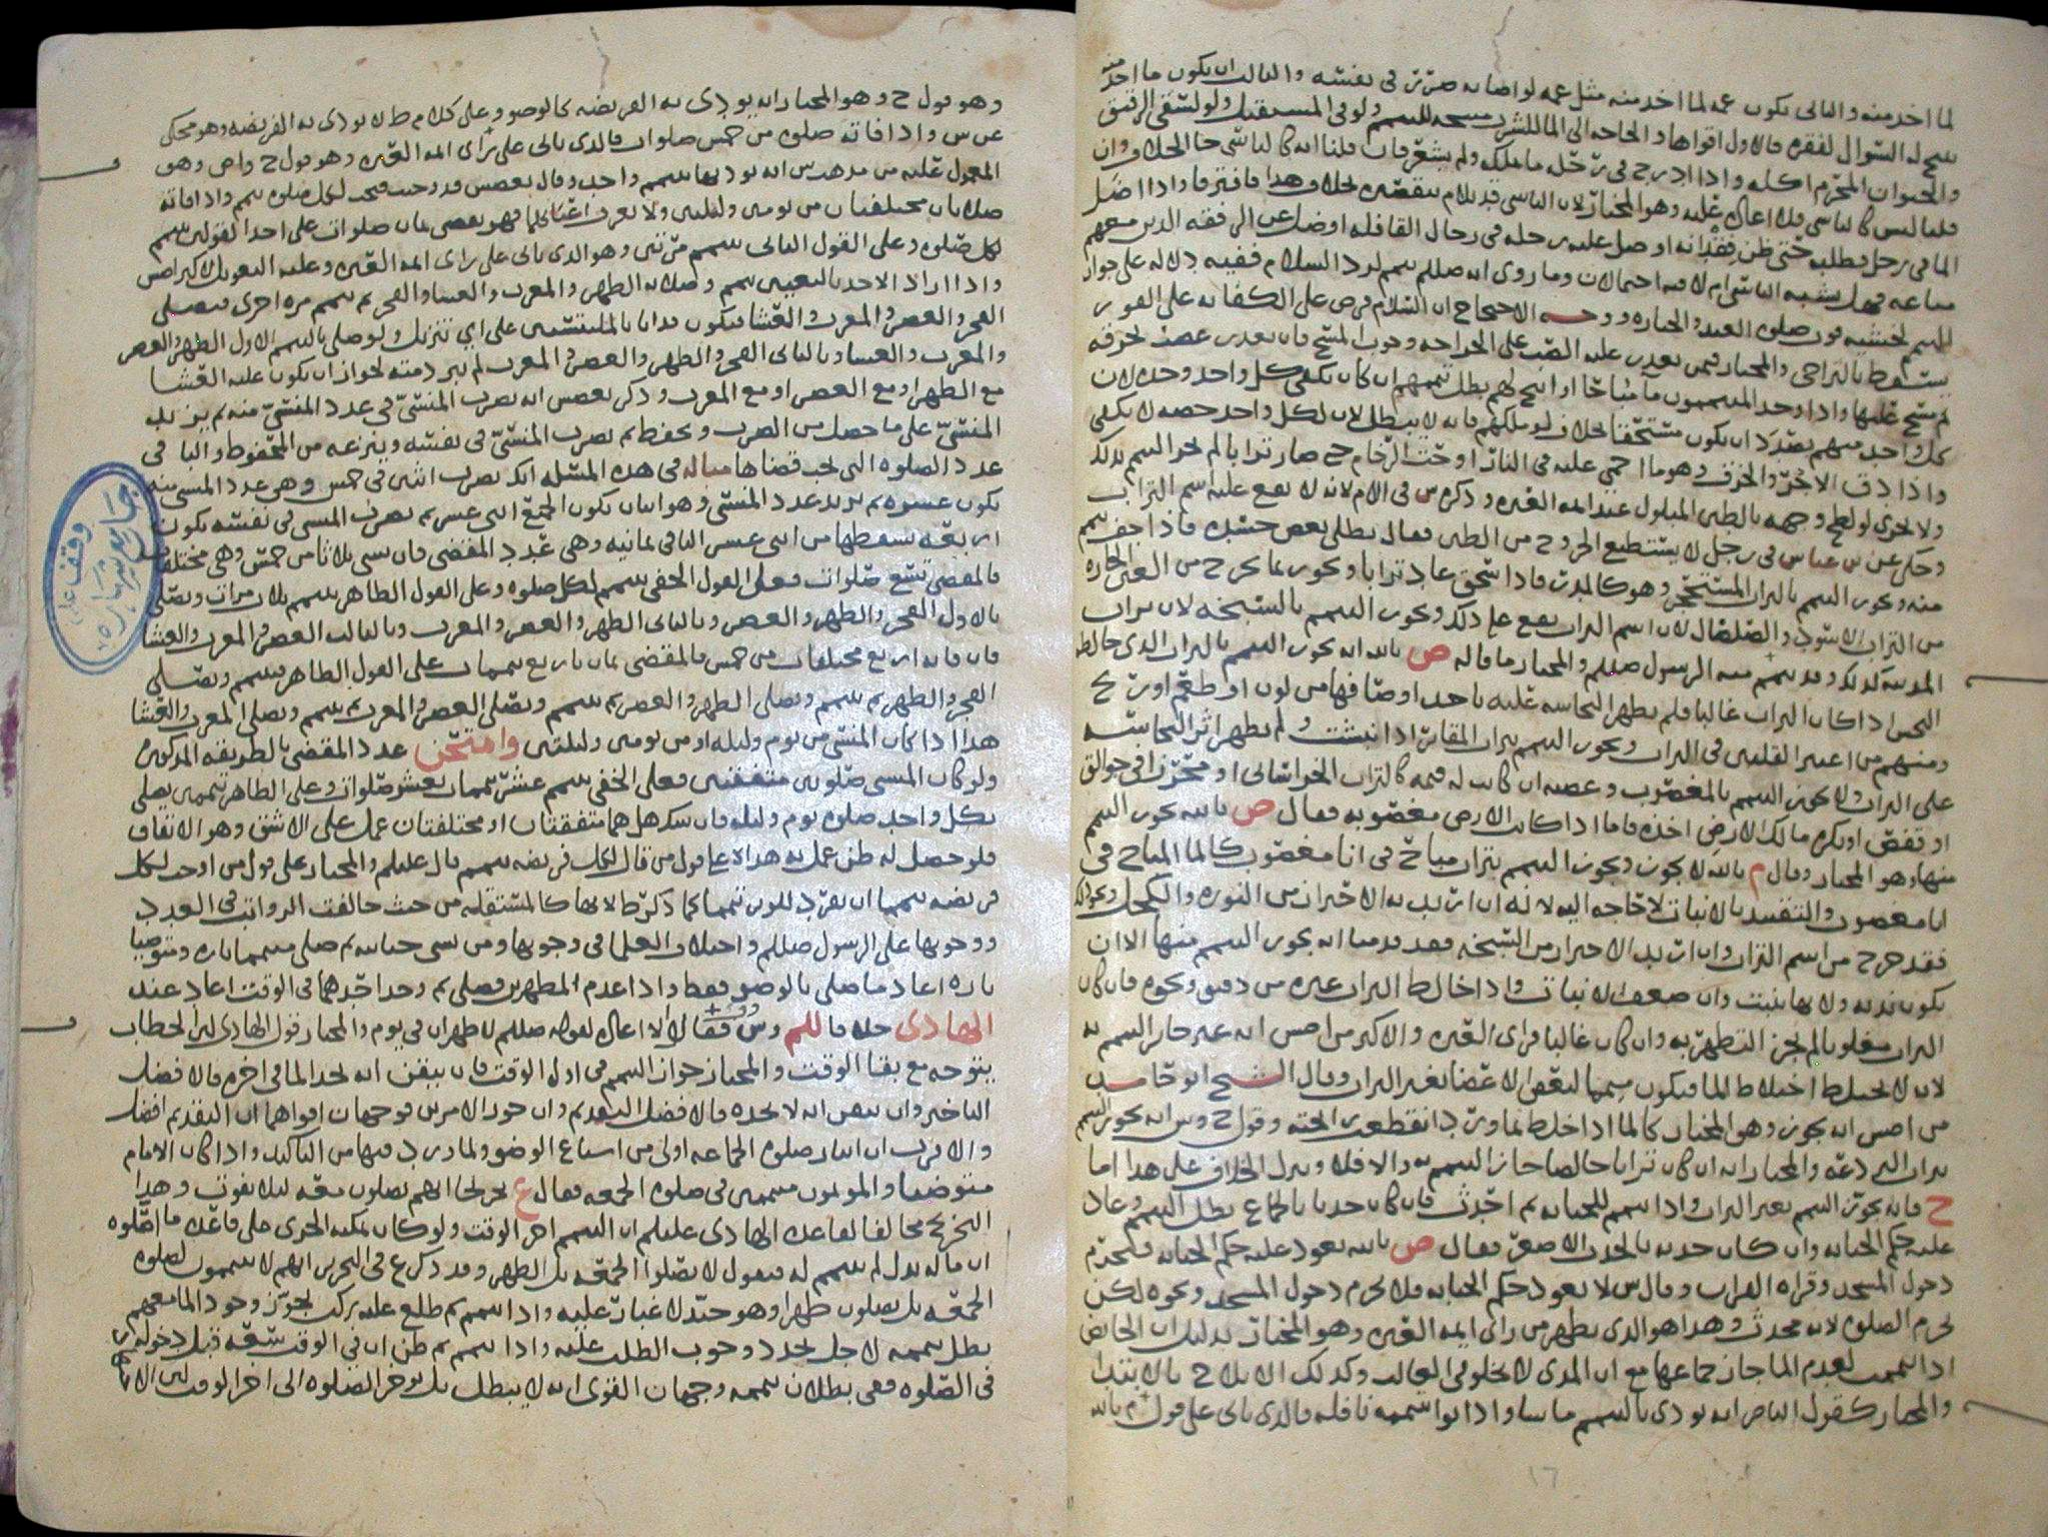 لما اخذ منه والثاني يكون عمه لما اخذ منه مثل عمه لو اصابه ضرر في نفسه والثالث ان يكون ما اخذ منه
فقره فالاول اقواها والحاجه الى الما للشرب مبيحه للتيمم ولو في المستقبل ولو لشقى الرقيق
والحيوان المحترم اكله واذا ادرج في رحله ما ملكه ولم يشعر فان قلنا انه كالناسي جا الخلاف وان
قلنا ليس كالناسي فلا اعاده عليه وهو المختار لان الناسي قد يلام بتقصيره بخلاف هذا فافترقا واذا اضل
الما في رحل فطلبه حتى ظن فقدانه او ضل عليه رحله في رحال القافله او ضل عن الرفقه الذين معهم
فهل يشبه الناسي ام لا فيه احتمالان وما روي انه صللم تيمم لرد السلام ففيه دلاله على جواز
التيمم لخشيه فوت صلوه العيد والجنازه ووجه الاحتجاج ان السلام فرض على الكفايه على الفور
يسقط بالتراخي والمختار فيمن تعذر عليه الصب على الجراحه وجوب المسح فان تعذر عصب بخرقه
ثم مسح عليها واذا وجد المتيممون ما مباحا او ابيح لهم بطل تيممهم ان كان يكفي كل واحد وحده لان
كل واحد منهم يقدر ان يكون مستحقا بخلاف لو ملكهم فانه لا يبطل لان لكل واحد حصه لا تكفي
واذا دق الاجر والخزف وهو ما احمي عليه في النار او حت الرخام حتى صار ترابا لم يجز التيمم بذلك
ولا يجزي لو لطخ وجهه بالطين المبلول عند ايمه العتره وذكره س في الام لانه لا يقع عليه اسم التراب
وحكي عن بن عباس في رجل لا يستطيع الخروج من الطين فقال يطلي بعض جسده فاذا جف تيمم
منه ويجوز التيمم بالتراب المستحجر وهو كالمدر فاذا سحق عاد ترابا ويجوز بما يخرج من الحاره
من التراب الاسود والصلصال لان اسم التراب يقع على ذلك ويجوز التيمم بالسبخه لان تراب
المدينه كذلك وقد تيمم منه الرسول صللم والمختار ما قاله ص بالله انه يجوز التيمم بالتراب الذي خالطه
النجس اذا كان التراب غالبا فلم يظهر النجاسه عليه باحد اوصافها من لون او طعم او ريح
ومنهم من اعتبر القلتين في التراب ويجوز التيمم بتراب المقابر اذا نبشت ولم يظهر اثر النجاسه
على التراب ولا يجوز التيمم بالمغصوب وغصبه ان كانت له قيمه كالتراب الخراساني او محرزا في جوالق
او قفص او يكره مالك الارض اخذه فاما اذا كانت الارض مغصوبه فقال ص بالله يجوز التيمم
منها وهو المختار وقال م بالله لا يجوز ويجوز التيمم بتراب مباح في انا مغصوب كالما المباح في
انا مغصوب والتقييد بالانبات لا حاجه اليه لانه ان اريد به الاحتراز من النوره والكحل ونحو ذلك
فقد خرج من اسم التراب وان اريد الاحتراز من السبخه فقد قدمنا انه يجوز التيمم منها الا ان
يكون نديه ولانها تنبت وان ضعف الانبات واذا خالط التراب غيره من دقيق ونحوه فان كان
التراب مغلوبا لم يجز التطهر به وان كان غالبا فراي العتره والاكثر من اصش انه غير جائز التيمم به
لانه لا يختلط اختلاط الما فيكون ميمما لبعض الاعضا بغير التراب وقال الشيخ ابو حامد
من اصش انه يجوز وهو المختار كالما اذا خلط بماورد انقطعت رائحته وقول ح وس انه يجوز التيمم
بتراب البردعه والمختار انه ان كان ترابا خالصا جاز التيمم به والا فلا وينزل الخلاف على هذا اما
ح فانه يجوز التيمم بغير التراب واذا تيمم للجنابه ثم احدث فان كان حدثا بالجماع بطل التيمم وعاد
عليه حكم الجنابه وان كان حدثه بالحدث الاصغر فقال ص بالله يعود عليه حكم الجنابه فيحرم
دخول المسجد وقراه القران وقال س لا يعود حكم الجنابه فلا يحرم دخول المسجد ونحوه لكن
تحرم الصلوه لانه محدث وهذا هو الذي يظهر من راي ايمه العتره وهو المختار بدليل ان الحايض
اذا تيممت لعدم الما جاز جماعها مع ان المذي لا يخلو في الغالب وكذلك الايلاج بالابتدا
والمختار كقول الناصر انه يودى بالتيمم ما شا واذا نوا بتيممه نافله فالذي ياتي على قول م بالله
وهو قول ح وهو المختار انه يودى به الفريضه كالوضو وعلى كلام ط لا يودى به الفريضه وهو محكي
عن س واذا فاته صلوه من خمس صلوات فالذي ياتي على راي ايمه العتره وهو قول ح واص وهو
المعمول عليه من مذهب س انه يوديها بتيمم واحد وقال بعضهم قد وجبت فيجب لكل صلوه تيمم واذا فاته
صلاتان مختلفتان من يومين وليلتين ولا يعرف اعيانهما فهو يقضي ثمان صلوات على احد القولين تيمم
لكل صلوه وعلى القول الثاني تيمم مرتين وهو الذي ياتي على راي ايمه العتره وعليه التعويل لاكثر اصش
واذا اراد الاخذ بالتعيين تيمم وصلا به الظهر والمغرب والعشا والفجر ثم تيمم مره اخرى فيصلي
الفجر والعصر والمغرب والعشا فيكون مدانا بالمنسيتين على اي تنزيل ولو صلى بالتيمم الاول الظهر والعصر
والمغرب والعشا وبالثاني الفجر والظهر والعصر والمغرب لم تبر ذمته لجواز ان يكون عليه العشا
مع الظهر او مع العصر او مع المغرب وذكر بعضهم انه يضرب المنسي في عدد المنسي منه ثم يزيد
المنسي على ما حصل من الضرب ويحفظ ثم يضرب المنسي في نفسه وينزعه من المحفوظ والباقي
عدد الصلوه التي يجب قضاها مثاله في هذه المسئله انك تضرب اثنين في خمس وهي عدد المنسي منه
يكون عشره ثم تزيد عدد المنسي وهو اثنان يكون الجميع اثني عشر ثم تضرب المنسي في نفسه يكون
اربعه تسقطها من اثني عشر الباقي ثمانيه وهي عدد المقضي فان نسي ثلاثا من خمس وهي مختلفه
فالمقضي تسع صلوات فعلى القول الخفي تيمم لكل صلوه وعلى القول الظاهر تيمم ثلاث مرات ويصلي
بالاول الفجر والظهر والعصر وبالثاني الظهر والعصر والمغرب وبالثالث العصر والمغرب والعشا
فان فاته اربع مختلفات من خمس فالمقضي ثمان باربع تيممات على القول الظاهر فيتيمم ويصلي
الفجر والظهر ثم تيمم ويصلي الظهر والعصر ثم تيمم ويصلي العصر والمغرب ثم تيمم ويصلي المغرب والعشا
هذا اذا كان المنسي من يوم وليله او من يومين وليلتين وامتحن عدد المقضي بالطريقه المذكوره
ولو كان المنسي صلوتين متفقتين فعلى الخفي تيمم عشر تيممات بعشر صلوات وعلى الظاهر تيممين يصلي
بكل واحد صلوه يوم وليله فان شك هل هما متفقتان او مختلفتان عمل على الاشق وهو الاتفاق
فلو حصل له ظن عمل به هذا على قول من قال لكل فريضه تيمم قال عليلم والمختار على قول من اوجب لكل
فريضه تيمما ان يفرد للوتر تيمما كما ذكره ط لانها كالمستقله من حيث خالفت الرواتب في العدد
ووجوبها على الرسول صللم واختلاف العلما في وجوبها ومن نسي جنابته ثم صلى متيمما تاره ومتوضيا
تاره اعاد ما صلى بالوضو فقط واذا عدم المطهرين فصلى ثم وجد احدهما في الوقت اعاد عند
الهادي خلافا للم وس فقالا لا اعاده لقوله صللم لا ظهران في يوم والمختار قول الهادي لان الخطاب
يتوجه مع بقا الوقت والمختار جواز التيمم في اول الوقت فان تيقن انه يجد الما في اخره فالافضل
التاخير وان تيقن انه لا يجده فالافضل التقديم وان جوز الامرين فوجهان اقواهما ان التقديم افضل
والاقرب ان ايثار صلوه الجماعه اولى من اسباغ الوضو ولما ورد فيها من التاكيد واذا كان الامام
متوضيا والمؤتمون متيممين في صلوه الجمعه فقال ع تخريجا انهم يصلون معه ليلا تفوت وهذا
التخريج مخالف لقاعده الهادي عليلم ان التيمم اخر الوقت ولو كان يمكنه الجري على قاعده ما اصلوه
ان ماله بدل لم تيمم له فيقول لا يصلوا الجمعه بل الظهر وقد ذكر ع في التحرير انهم لا يتيممون لصلوه
الجمعه بل يصلون ظهرا وهو جيد لا غبار عليه واذا تيمم ثم طلع عليه ركب يجوز وجود الما معهم
بطل تيممه لاجل تجدد وجوب الطلب عليه واذا تيمم ثم ظن ان في الوقت سعه قبل دخوله
في الصلوه ففي بطلان تيممه وجهان القوي انه لا يبطل بل يوخر الصلوه الى اخر الوقت
وقف على
جامع شهاره